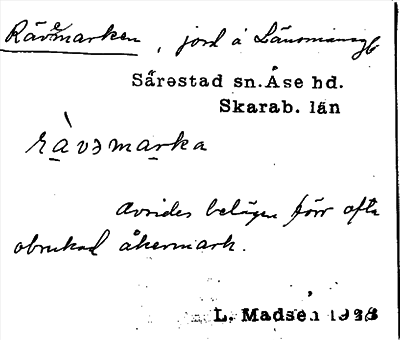 Rävemarken, jord å Länsmansgb
Särestad sn. Åse hd.
Skarab. län
rà̱vəma̱rka
Avsides belägen förr ofta
obrukad åkermark.
L. Madsén